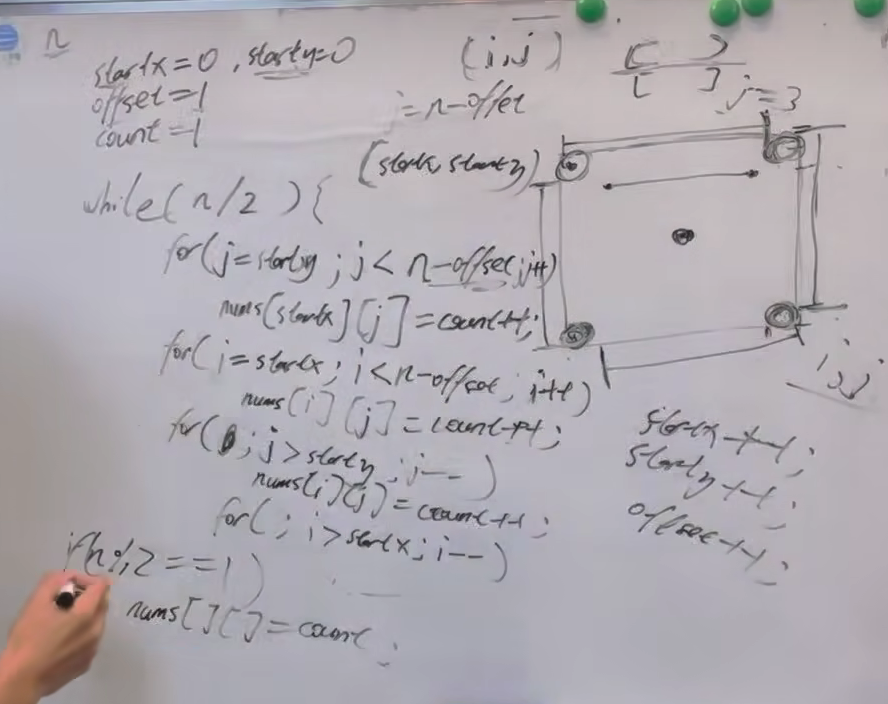 n
startx=0, starty=0
offset=1
count=1
while(n/2){
for(j=starty; j<n-offset; j++)
nums[startx][j]=count++;
for(i=startx; i<n-offset; i++)
nums[i][j]=count++;
for(; j>starty; j--)
nums[i][j]=count++;
for(; i>startx; i--)
if(n%2==1)
nums[][]=count;
(i,j)
[ )
[ ]
j=n-offset
j=3
(startx, starty)
i,j
startx++;
starty++;
offset++;